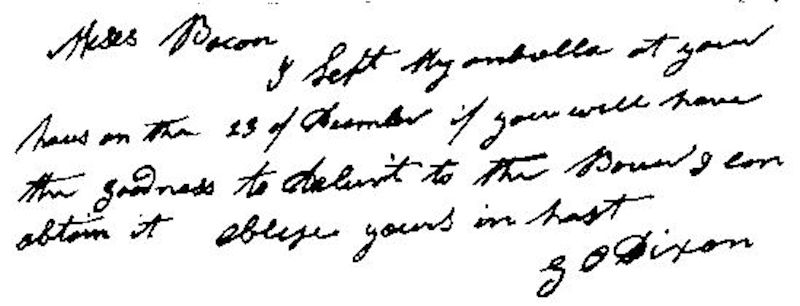 Miss Bacon
I Left My umbrella at your
haus on the 23 of December if you will have
the goodness to deliver it to the Bearer I can
obtain it oblige yours in hast
G O Dixon